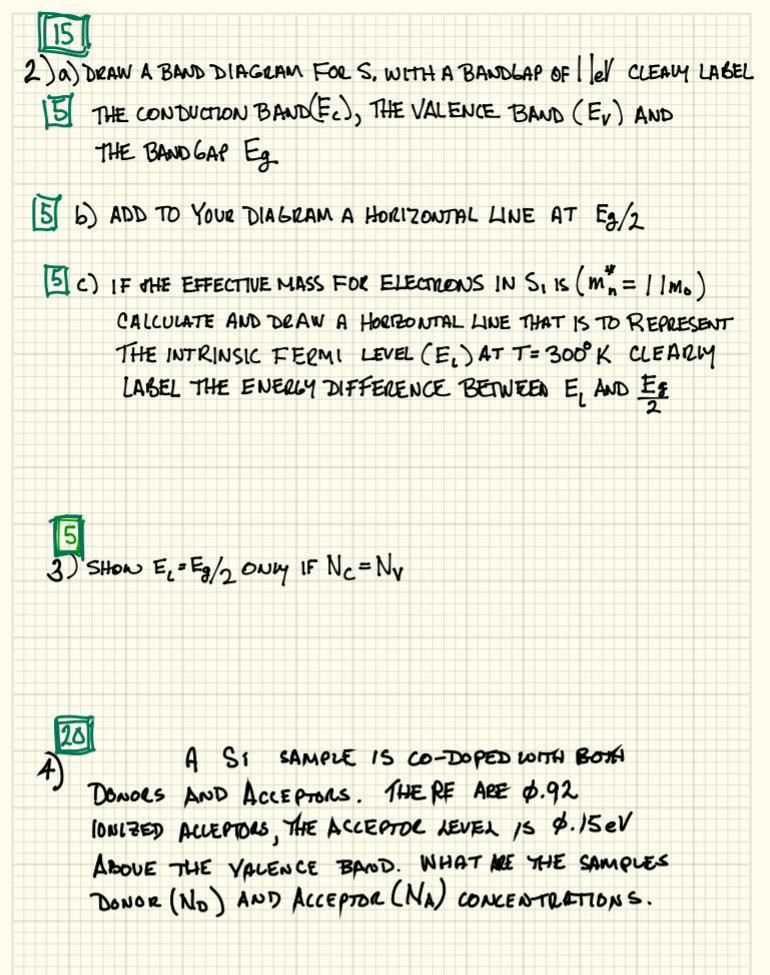 15
2) a) DRAW A BAND DIAGRAM FOR Si WITH A BANDGAP OF 1.1eV CLEALY LABEL
5 THE CONDUCTION BAND(Ec), THE VALENCE BAND (Ev) AND
THE BANDGAP Eg
5 b) ADD TO YOUR DIAGRAM A HORIZONTAL LINE AT Eg/2
5 c) IF THE EFFECTIVE MASS FOR ELECTRONS IN Si IS (m*n = 1.1m₀)
CALCULATE AND DRAW A HORIZONTAL LINE THAT IS TO REPRESENT
THE INTRINSIC FERMI LEVEL (Ei) AT T=300°K CLEARLY
LABEL THE ENERGY DIFFERENCE BETWEEN Ei AND Eg/2
5
3) SHOW Ei=Eg/2 ONLY IF Nc=Nv
20
4) A Si SAMPLE IS CO-DOPED WITH BOTH
DONORS AND ACCEPTORS. THERE ARE 0.92
IONIZED ACCEPTORS, THE ACCEPTOR LEVEL IS 0.15eV
ABOVE THE VALENCE BAND. WHAT ARE THE SAMPLES
DONOR (ND) AND ACCEPTOR (NA) CONCENTRATIONS.